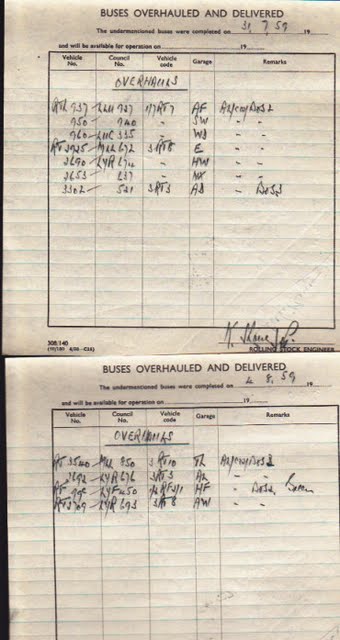 BUSES OVERHAULED AND DELIVERED
The undermentioned buses were completed on 31.7.59 19
and will be available for operation on 19
Vehicle No. Council No. Vehicle code Garage Remarks
OVERHAULS
RTL 937 LUC 737 1/7RT7 AF
950 740 " SW " "
960 LUC 335 " WD " "
RT 3925 MLL 672 3RT8 E " "
2690 LYR 674 " HW " "
2653 637 " NX " "
3302 521 3RT3 AD "
ROLLING STOCK ENGINEER
308/140
BUSES OVERHAULED AND DELIVERED
The undermentioned buses were completed on 4.8.59 19
and will be available for operation on 19
Vehicle No. Council No. Vehicle code Garage Remarks
OVERHAULS
RT 3540 850 3RT10 TL
2692 LYR 676 3RT3 AL " "
RT 995 LYF 450 HF "
RT 2709 LYR 693 3RT8 AW " "